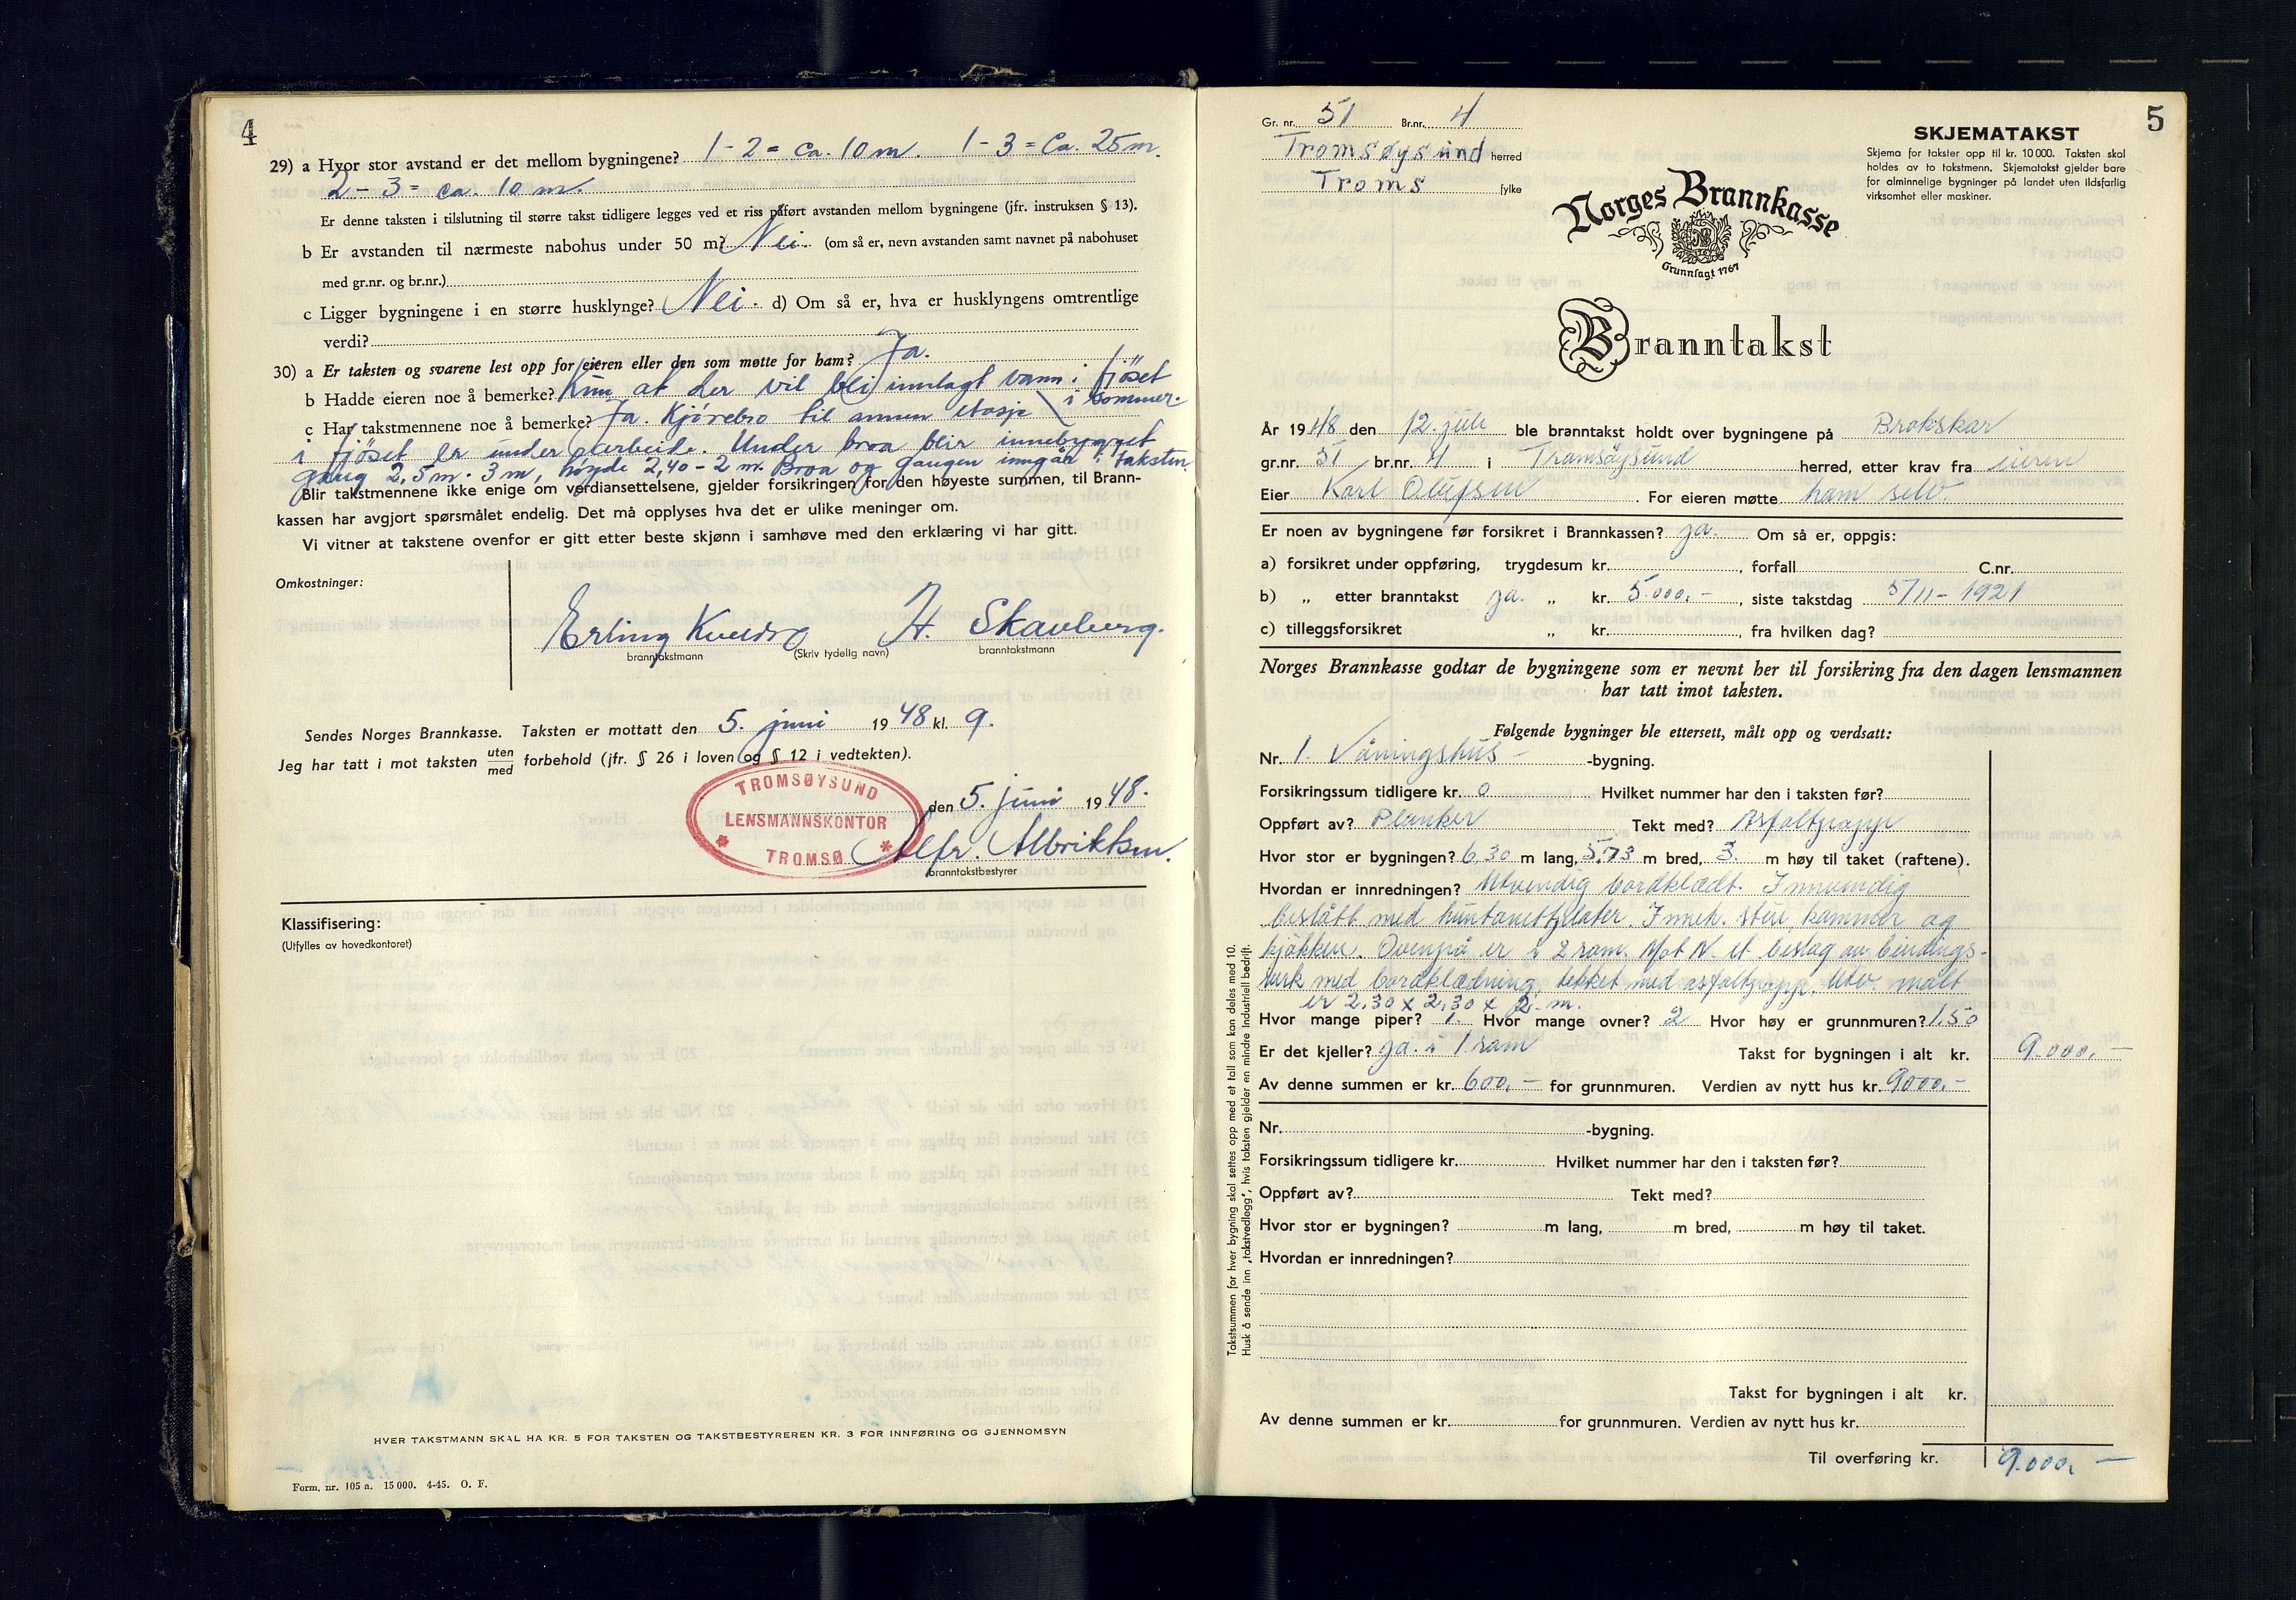 4
29) a Hvor stor avstand er det mellom bygningene? 1 - 2 = ca. 10 m. 1 - 3 = Ca. 25 m.
2 - 3 = ca. 10 m.
Er denne taksten i tilslutning til større takst tidligere legges ved et riss påført avstanden mellom bygningene (jfr. instruksen § 13).
b Er avstanden til nærmeste nabohus under 50 m? Nei. (om så er, nevn avstanden samt navnet på nabohuset
med gr.nr. og br.nr.)
c Ligger bygningene i en større husklynge? Nei. d) Om så er, hva er husklyngens omtrentlige
verdi?
30) a Er taksten og svarene lest opp for eieren eller den som møtte for ham? Ja.
b Hadde eieren noe å bemerke? Kun at der vil bli innlagt vann i fjöset
i sommer.
c Har takstmennene noe å bemerke? Ja. Kjörebro til annen etasje
i fjöset er under arbeide. Under broa blir innebygget
gang 2,5 m · 3 m, høyde 2,40 - 2 m. Broa og gangen inngår i taksten
Blir takstmennene ikke enige om verdiansettelsene, gjelder forsikringen for den høyeste summen, til Brann-
kassen har avgjort spørsmålet endelig. Det må opplyses hva det er ulike meninger om.
Vi vitner at takstene ovenfor er gitt etter beste skjønn i samhøve med den erklæring vi har gitt.
Omkostninger:
Erling H. Skavberg.
branntakstmann (Skriv tydelig navn) branntakstmann
Sendes Norges Brannkasse. Taksten er mottatt den 5. juni 1948 kl. 9.
Jeg har tatt i mot taksten uten/med forbehold (jfr. § 26 i loven og § 12 i vedtekten).
TROMSØYSUND
LENSMANNSKONTOR
* TROMSØ *
den 5. juni 1948.
Alfr. Albriktsen.
branntakstbestyrer
Klassifisering:
(Utfylles av hovedkontoret)
HVER TAKSTMANN SKAL HA KR. 5 FOR TAKSTEN OG TAKSTBESTYREREN KR. 3 FOR INNFØRING OG GJENNOMSYN
Form. nr. 105 a. 15 000. 4-45. O. F.
5
Gr. nr. 51 Br.nr. 4
Tromsøysund herred
Troms fylke
SKJEMATAKST
Skjema for takster opp til kr. 10 000. Taksten skal
holdes av to takstmenn. Skjematakst gjelder bare
for alminnelige bygninger på landet uten ildsfarlig
virksomhet eller maskiner.
Norges Brannkasse
Grunnlagt 1767
Branntakst
År 1948 den 12. juli ble branntakst holdt over bygningene på Brokskar
gr.nr. 51 br.nr. 4 i Tromsöysund herred, etter krav fra eieren
Eier Karl Olufsen. For eieren møtte ham selv.
Er noen av bygningene før forsikret i Brannkassen? ja. Om så er, oppgis:
a) forsikret under oppføring, trygdesum kr. , forfall C.nr.
b) „ etter branntakst ja. „ kr. 5.000,- , siste takstdag 5/11 - 1921
c) tilleggsforsikret „ kr. , fra hvilken dag?
Norges Brannkasse godtar de bygningene som er nevnt her til forsikring fra den dagen lensmannen
har tatt imot taksten.
Følgende bygninger ble ettersett, målt opp og verdsatt:
Nr. 1. Våningshus - -bygning.
Forsikringssum tidligere kr. 0 Hvilket nummer har den i taksten før?
Oppført av? Planker Tekt med? Asfaltpapp
Hvor stor er bygningen? 6.30 m lang, 5.73 m bred, 3. m høy til taket (raftene).
Hvordan er innredningen? Utvendig bordklædt. Innvendig
beslått med huntonettplater. Inneh. stue, kammer og
kjökken. Ovenpå er i 2 rom. Mot N. et beslag av bindings-
verk med bordklædning, tekket med asfaltpapp. Utv. målt
er 2,30 x 2,30 x 2. m.
Hvor mange piper? 1. Hvor mange ovner? 2 Hvor høy er grunnmuren? 1.50
Er det kjeller? ja. i 1 rom Takst for bygningen i alt kr. 9.000,-
Av denne summen er kr. 600,- for grunnmuren. Verdien av nytt hus kr. 9000,-
Nr. -bygning.
Forsikringssum tidligere kr. Hvilket nummer har den i taksten før?
Oppført av? Tekt med?
Hvor stor er bygningen? m lang, m bred, m høy til taket.
Hvordan er innredningen?
Takst for bygningen i alt kr.
Av denne summen er kr. for grunnmuren. Verdien av nytt hus kr.
Til overføring kr. 9.000,-
Takstsummen for hver bygning skal settes opp med et tall som kan deles med 10.
Husk å sende inn „takstvedlegg", hvis taksten gjelder en mindre industriell bedrift.